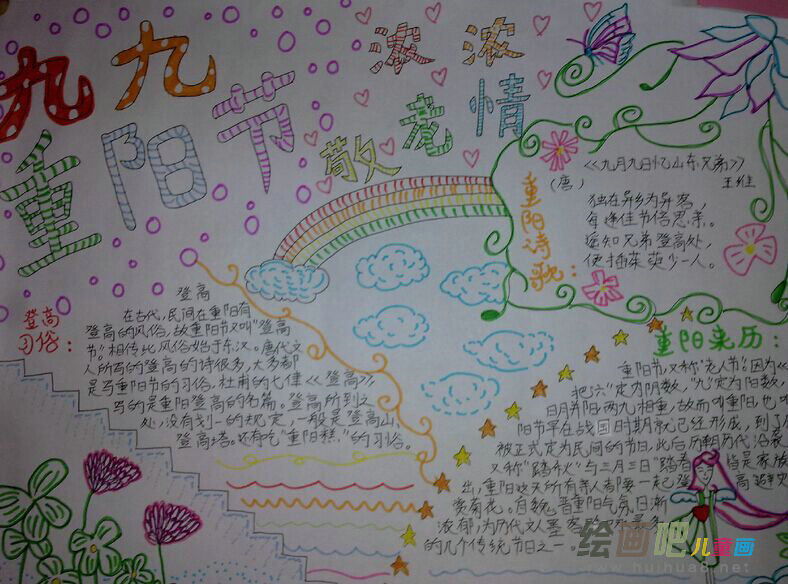 九九
重阳节
浓浓
敬老情
《九月九日忆山东兄弟》
(唐) 王维
独在异乡为异客,
每逢佳节倍思亲。
遥知兄弟登高处,
便插茱萸少一人。
重阳诗歌:
登高
习俗:
登高
在古代,民间在重阳有
登高的风俗,故重阳节又叫“登高
节”。相传此风俗始于东汉。唐代文
人所写的登高的诗很多,大多都
是写重阳节的习俗,杜甫的七律《登高》,
写的是重阳登高的名篇。登高所到之
处,没有划一的规定,一般是登高山、
登高塔。还有吃“重阳糕”的习俗。
重阳来历:
重阳节,又称“老人节”因为《
把“六”定为阴数,“九”定为阳数,
日月并阳,两九相重,故而叫重阳,也叫
阳节早在战国时期就已经形成,到了
被正式定为民间的节日,此后历朝历代沿袭
又称“踏秋”与三月三日“踏春”皆是家族
出,重阳这天所有亲人都要一起登高
赏菊花。
浓郁,为历代文人墨客
的几个传统节日之一.
绘画吧儿童画
www.huihua8.net